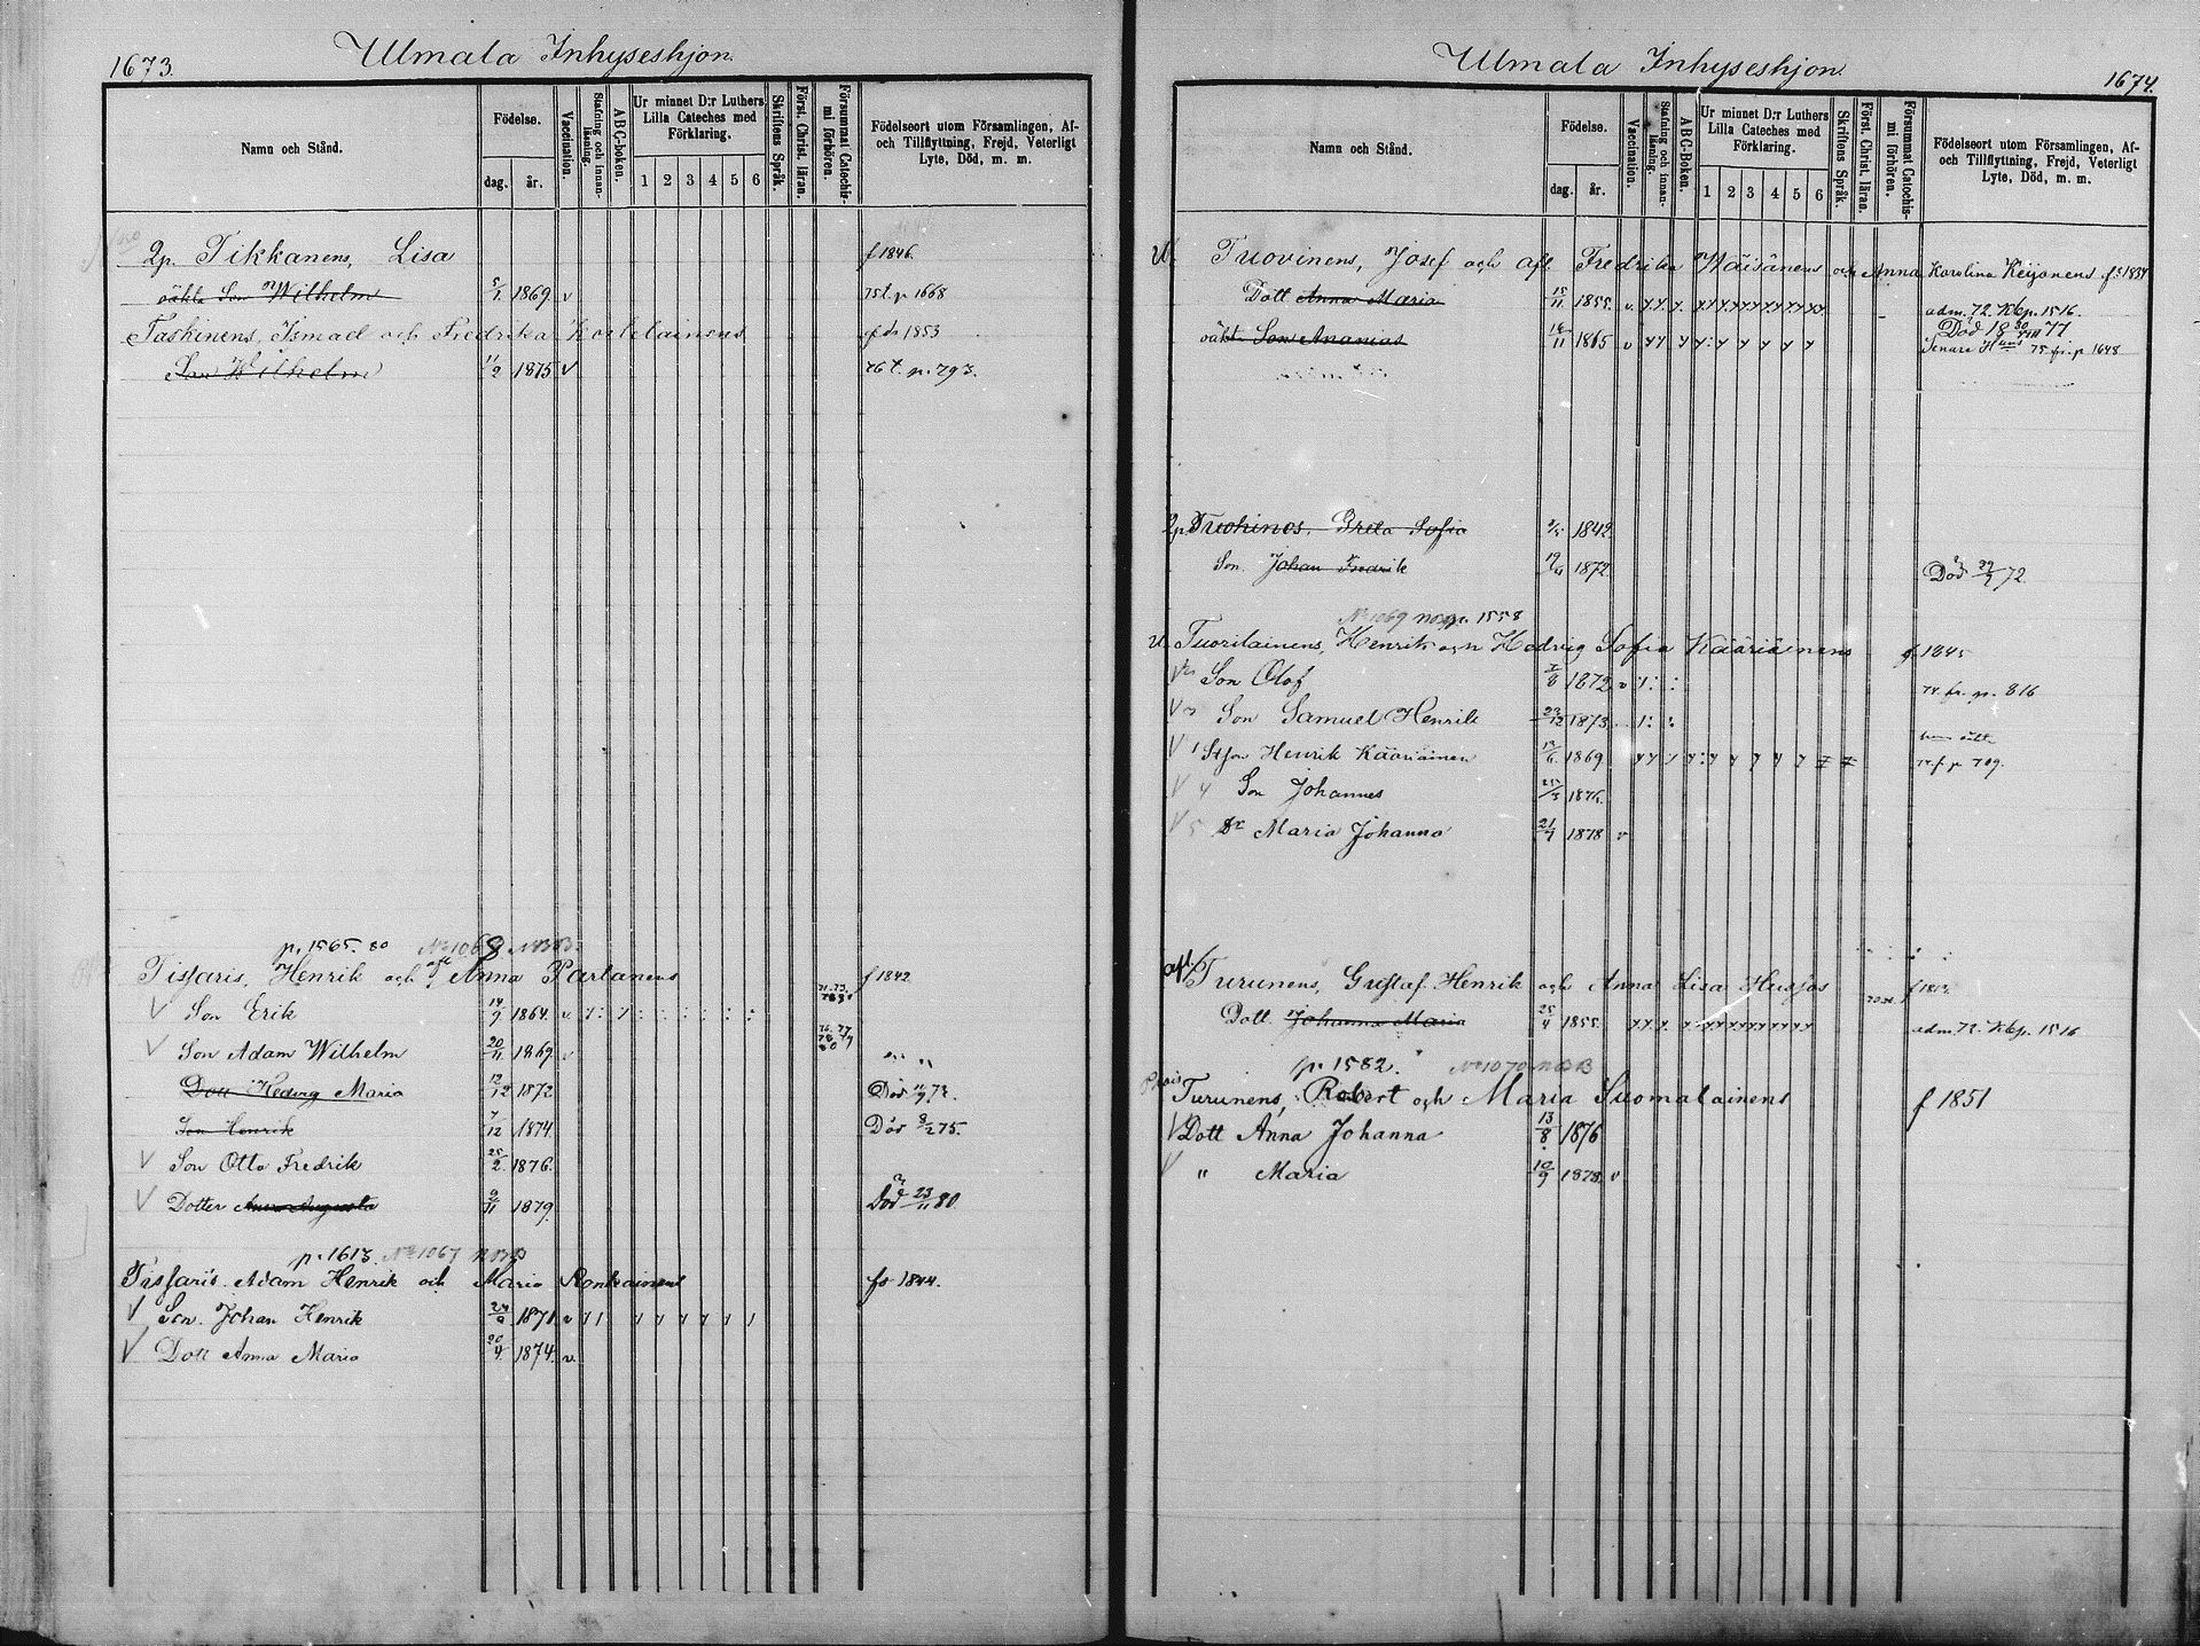 1673.
Ulmala Inhyseshjon.
Namn och Stånd.
Födelse.
dag.
år.
Vaccination.
Stafning och innan-läsning.
ABC-boken.
Ur minnet D:r Luthers Lilla Cateches med Förklaring.
1 2 3 4 5 6
Skriftens Språk.
Först. Christ. läran.
Försummat Catechis-mi förhören.
Födelseort utom Församlingen, Af- och Tillflyttning, Frejd, Veterligt Lyte, Död, m. m.
Qp. Tikkanens, Lisa f 1846.
oäkta Son Wilhelm 5/1 1869 v 75 t. p 1668
Taskinens, Ismael och Fredrika Kortelainens 1853
Son Wilhelm 11/2 1875 v 76 t. p. 793.
p. 1565. 80
Tissaris, Henrik och Anna Partanens f 1842
V Son Erik 14/9 1864. v
V Son Adam Wilhelm 20/11 1869 v
Dott Hedvig Maria 12/12 1872 Död
Son Henrik 7/12 1874 Död 8/2 75.
V Son Otto Fredrik 25/2 1876.
V Dotter Anna Augusta 9/11 1879 Död 23/11 80.
p. 1613. No 1067
Tissaris Adam Henrik och Maria Ronkainens fr 1844.
V Son. Johan Henrik 24/9 1871 v
V Dott Anna Maria 20/4 1874. v.
Ulmala Inhyseshjon.
1674.
Namn och Stånd.
Födelse.
dag.
år.
Vaccination.
Stafning och innan-läsning.
ABC-Boken.
Ur minnet D:r Luthers Lilla Cateches med Förklaring.
1 2 3 4 5 6
Skriftens Språk.
Först. Christ. läran.
Försummat Catechis-mi förhören.
Födelseort utom Församlingen, Af- och Tillflyttning, Frejd, Veterligt Lyte, Död, m. m.
U. Tuovinens, Josef och afl Fredrika Wäisänens och Anna Karolina Keijonens f. 1834
Dött Anna Maria 15/11 1855. v. adm. 72. Kbp. 1516.
Död 18 30/VIII 77
oäkt. Son Ananias 1865 v Senare 75 fr. p 1648
Qp. Tuohinos. Greta Sofia 1842.
Son. Johan Fredrik 1872 Död 72.
No 1069 p. 1558
U. Tuorilainens, Henrik och Hedvig Sofia Kääriäinens f. 1845
V Son Olof 1872 v 74. fr. p. 816
V Son Samuel Henrik 23/12 1873.
V 1 Stson Henrik Kääriäinen 1869 p 709.
V 4 Son Johannes 1876.
V 5 Dr Maria Johanna 1878 v
afl. Turunens, Gustaf Henrik och Anna Lisa Hugsos
Dott. Johanna Maria 25/4 1855. adm. 72. Kbp. 1516
p. 1582. No 1070
Turunens, Robert och Maria Suomalainens f 1851
V Dott Anna Johanna 13/8 1876
V " Maria 10/9 1878. v